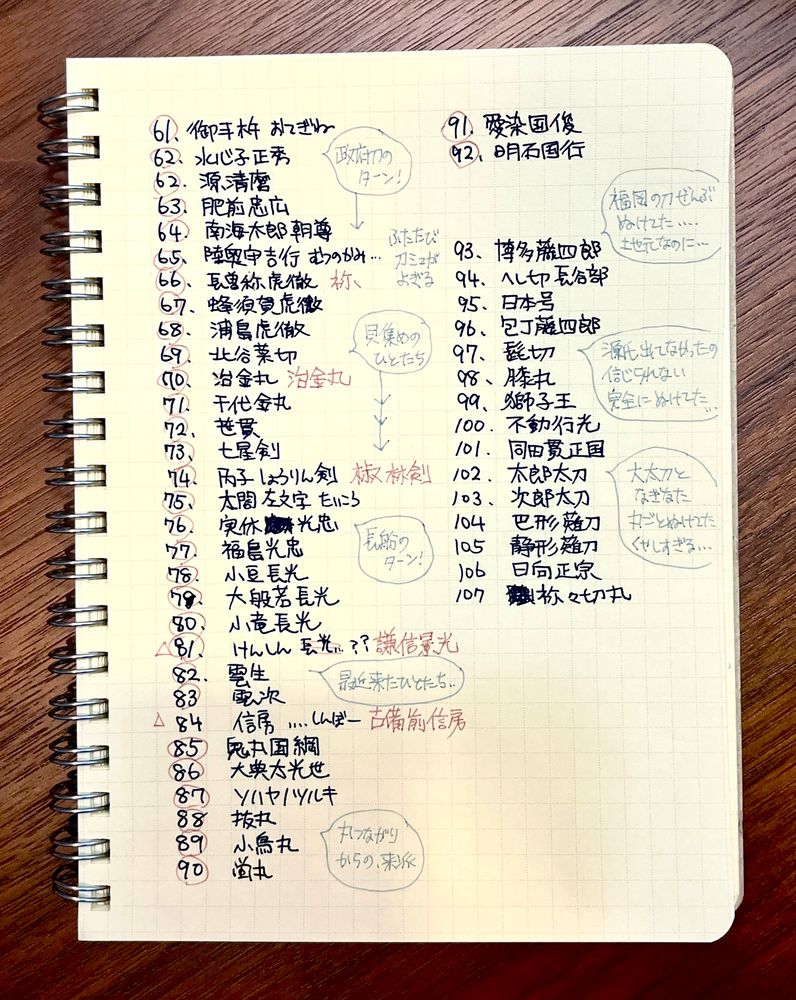 61、御手杵 おてぎね
62、水心子正秀
62、源清麿
63、肥前忠広
64、南海太郎朝尊
65、陸奥守吉行 むつのかみ…
66、長曽祢虎徹 祢、
67、蜂須賀虎徹
68、浦島虎徹
69、北谷菜切
70、冶金丸 治金丸
71、千代金丸
72、笹貫
73、七星剣
74、丙子しょうりん剣 椒林剣
75、大閤左文字 たいこう
76、実休光忠
77、福島光忠
78、小豆長光
79、大般若長光
80、小竜長光
△81、けんしん 長光…?? 謙信景光
82、雲生
83 雲次
△84 信房 ….しんぼー 古備前信房
85 鬼丸国綱
86 大典太光世
87 ソハヤノツルキ
88 抜丸
89 小烏丸
90 蛍丸
政府刀の
ターン!
ふたたび
刀ミュが
よぎる
貝集めの
ひとたち
長船の
ターン!
最近来たひとたち..
丸つながり
からの、来派
91、愛染国俊
92、明石国行
93、博多藤四郎
94、へし切長谷部
95、日本号
96、包丁藤四郎
97、髭切
98、膝丸
99、獅子王
100、不動行光
101、同田貫正国
102、太郎太刀
103、次郎太刀
104 巴形薙刀
105 静形薙刀
106 日向正宗
107 祢々切丸
福岡の刀ぜんぶ
ぬけてた….
地元なのに…
源氏出てなかったの
信じられない
完全にぬけてた…
大太刀と
なぎなた
丸ごとぬけてた
くやしすぎる…